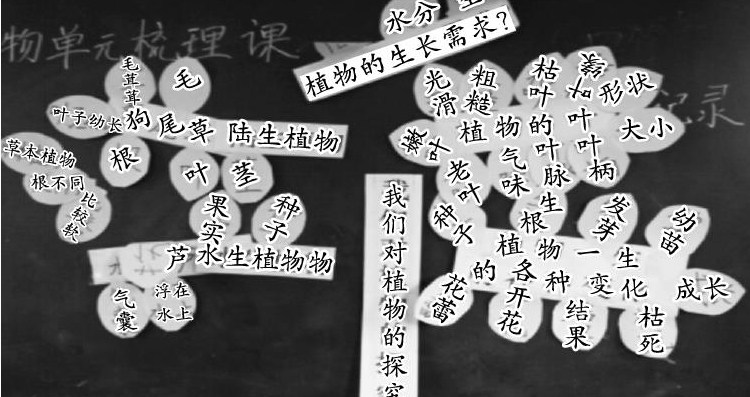 物单元梳理课
水分
植物的生长需求？
毛茸茸
毛
叶子幼长
狗尾草 陆生植物
草本植物
根
根不同
比较软
叶
茎
果实
种子
芦水生植物物
气囊
浮在水上
我们对植物的探究
光滑
粗糙
枯叶
形状
嫩叶
植物的叶
叶
大小
老叶
气味
叶脉
叶柄
记录
种子
生根
发芽
幼苗
植物一生的各种变化
成长
花蕾
开花
结果
枯死